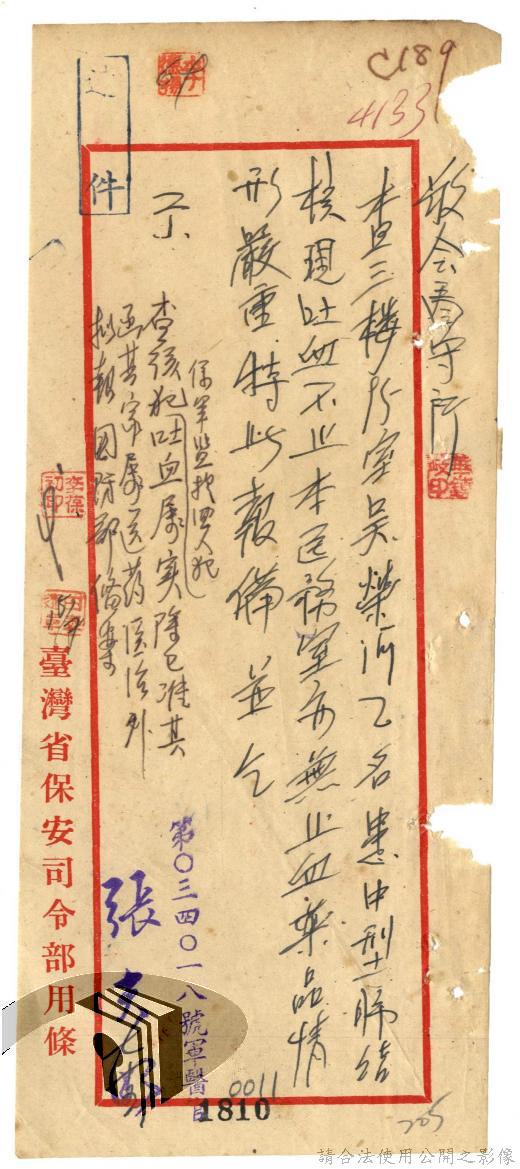 C189
4133
件
敬会看守所
查三楼所室吴荣河乙名患中型肺結
核現吐血不止本医務室亦無止血藥品情
形嚴重特此報備並乞
示
保軍監執男犯
查該犯吐血属实除已准其
函其家屬送药医治外
拟報国防部俻案
第〇三四〇一八號軍醫
張
0011
1810
205
臺灣省保安司令部用條
請合法使用公開之影像